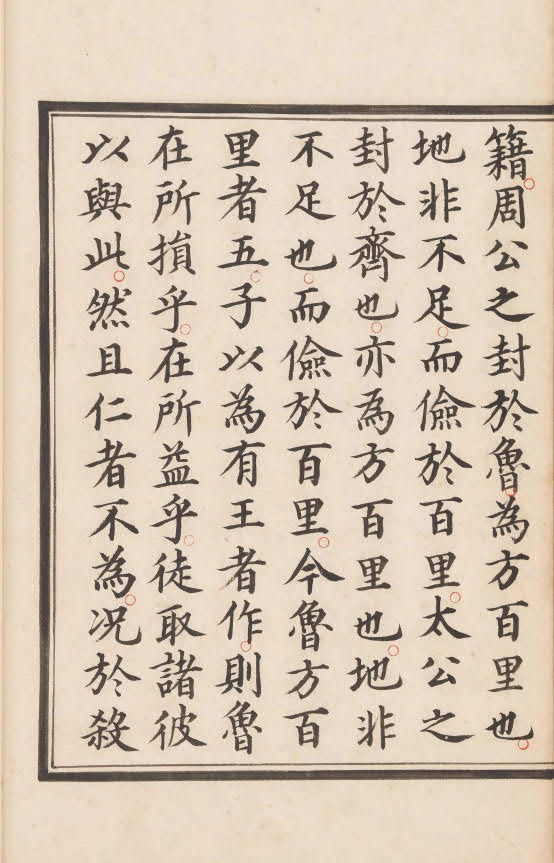 籍。周公之封於魯。為方百里也。
地非不足。而儉於百里。太公之
封於齊也。亦為方百里也。地非
不足也。而儉於百里。今魯方百
里者五。子以為有王者作。則魯
在所損乎。在所益乎。徒取諸彼
以與此。然且仁者不為。况於殺